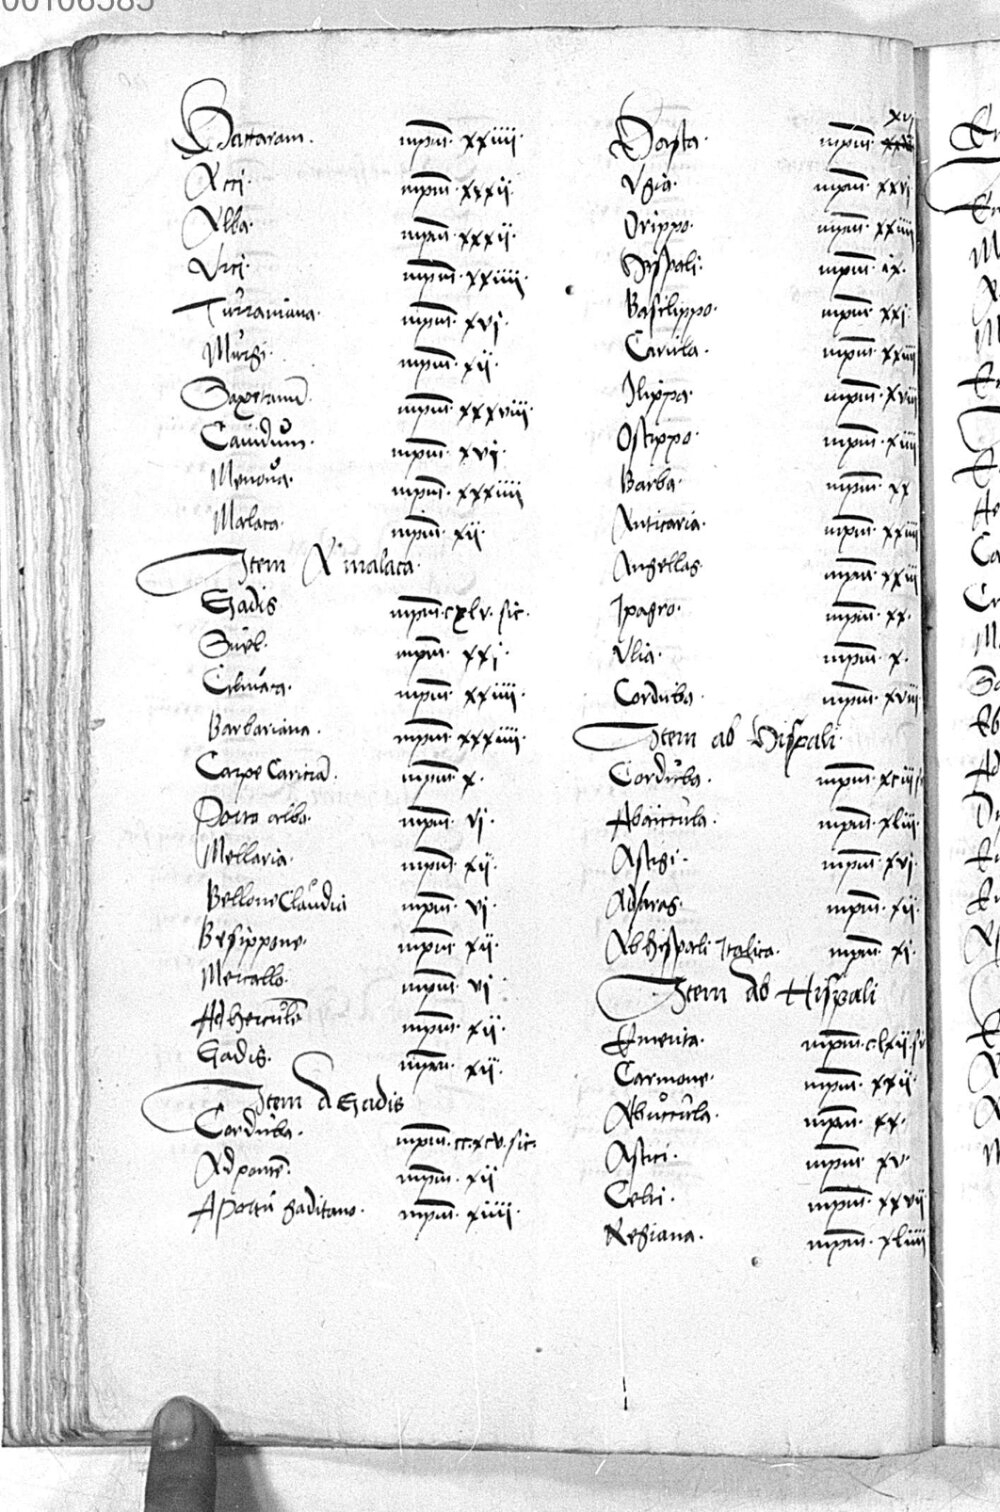 00106385
Bactaram. mpm̄. xxiiii.
Acci. mpm̄. xxxii.
Alba. mpm̄. xxxii.
Urci. mpm̄. xxiiii.
Turraniana. mpm̄. xvi.
Murgi. mpm̄. xii.
Saxetanū. mpm̄. xxxviii.
Cauidum. mpm̄. xvi.
Menoua. mpm̄. xxxiiii
Malaca. mpm̄. xii.
Item A' malaca.
Gadis mpm̄. cxlv. sic.
Suel. mpm̄. xxi.
Cilniaca. mpm̄. xxiiii.
Barbariana. mpm̄. xxxiiii.
Carpe Cariciā. mpm̄. x.
Porto albo. mpm̄. vi.
Mellaria. mpm̄. xii.
Bellone Claudia mpm̄. vi.
Besippone. mpm̄. xii.
Mercallo. mpm̄. vi
Ad herculē mpm̄. xii.
Gadis. mpm̄. xii.
Item A Gadis
Corduba. mpm̄. cc.xcv. sic.
Ad pontē. mpm̄. xii
A Portu gaditano. mpm̄. xiiii.
Hasta. mpm̄. xvi
Ugia. mpm̄. xxvi
Orippo. mpm̄. xxiiii
Hispali. mpm̄. ix.
Basilippo. mpm̄. xxi.
Carula. mpm̄. xxiiii
Ilippa. mpm̄. xviii
Ostippo. mpm̄. xiiii
Barba. mpm̄. xx
Anticaria. mpm̄. xxiiii
Angellas. mpm̄. xxiii
Ipagro. mpm̄. xx.
Ulia. mpm̄. x.
Corduba. mpm̄. xviii
Item ab Hispali.
Corduba. mpm̄. xciii
Abaiccula. mpm̄. xliii.
Astigi. mpm̄. xvi
Adaras. mpm̄. xii.
Ab hispali Italica. mpm̄. xi.
Item ab Hispali
Emerita. mpm̄. clxii.
Carmone. mpm̄. xxii.
Abuccula. mpm̄. xx.
Astici. mpm̄. xv.
Celti. mpm̄. xxvii
Regiana. mpm̄. xliiii